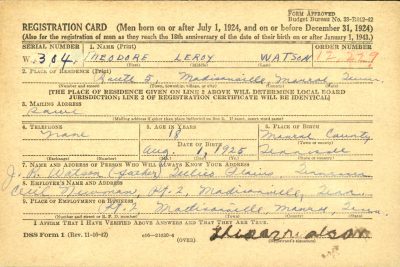 FORM APPROVED
Budget Bureau No. 33-R012-42
REGISTRATION CARD (Men born on or after July 1, 1924, and on or before December 31, 1924)
(Also for the registration of men as they reach the 18th anniversary of the date of their birth on or after January 1, 1943.)
SERIAL NUMBER 1. NAME (Print) ORDER NUMBER
W. 304 THEODORE LEROY WATSON 12,229
(First) (Middle) (Last)
2. PLACE OF RESIDENCE (Print)
Route 5, Madisonville, Monroe, Tenn.
(Number and street) (Town, township, village, or city) (County) (State)
[THE PLACE OF RESIDENCE GIVEN ON LINE 2 ABOVE WILL DETERMINE LOCAL BOARD
JURISDICTION; LINE 2 OF REGISTRATION CERTIFICATE WILL BE IDENTICAL]
3. MAILING ADDRESS
Same
[Mailing address if other than place indicated on line 2. If same, insert word same]
4. TELEPHONE 5. AGE IN YEARS 6. PLACE OF BIRTH
None 18 Monroe County
DATE OF BIRTH (Town or county)
Aug. 1925 Tennessee
(Exchange) (Number) (Mo.) (Day) (Yr.) (State or country)
7. NAME AND ADDRESS OF PERSON WHO WILL ALWAYS KNOW YOUR ADDRESS
Watson (father) Tellico Plains, Tennessee
8. EMPLOYER'S NAME AND ADDRESS
Cecil Rt. 2, Madisonville, Tenn.
9. PLACE OF EMPLOYMENT OR BUSINESS
Rt. 2 Madisonville, Monroe, Tenn.
(Number and street or R. F. D. number) (Town) (County) (State)
I AFFIRM THAT I HAVE VERIFIED ABOVE ANSWERS AND THAT THEY ARE TRUE.
DSS Form 1 (Rev. 11-16-42) (OVER)
(Registrant's signature)